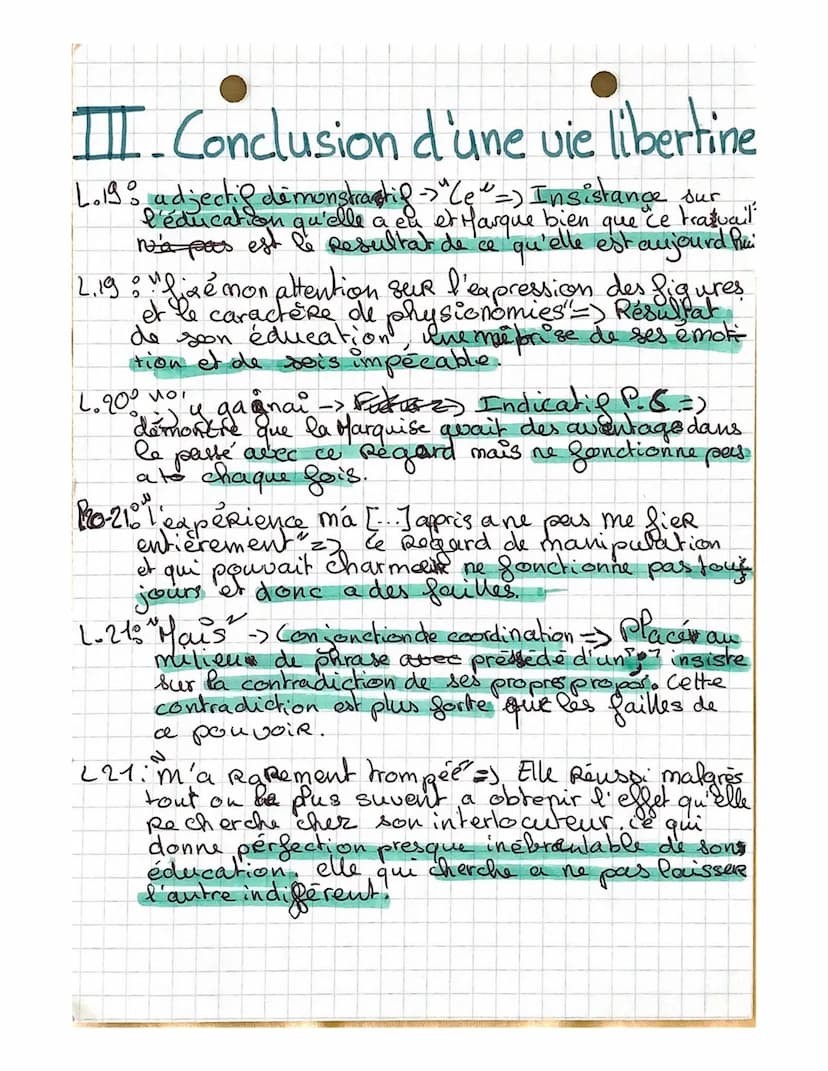 III - Conclusion d'une vie libertine
L.19 : adjectif démonstractif -> "Ce" => Insistance sur
l'éducation qu'elle a eu et Marque bien que "ce travail"
n'a pas est le resultat de ce qu'elle est aujourd'hui
L.19 : "fixé mon attention sur l'expression des figures
et le caractère de physionomies" => Résultat
de son éducation, une maîtrise de ses émoti-
tion et de sois impécable.
L.20 : "j'y gagnai -> => Indicatif P.S =>
démontre que la Marquise avait des aventage dans
le passé avec ce Regard mais ne fonctionne pas
a chaque fois.
20-21 : "l'expérience m'a [...] appris a ne pas me fier
entièrement" => Le Regard de manipulation
et qui pouvait charmer ne fonctionne pas touj-
jours et donc a des failles.
L.21 : "Mais" -> Conjonction de coordination => Placér au
milieu de phrase avec préssédé d'un ";" insiste
sur la contradiction de ses propres propos. Cette
contradiction est plus forte que les failles de
ce pouvoir.
L21 : "m'a Rarement trompée" => Elle Réussi malgrès
tout ou le plus suvent a obtenir l'effet qu'elle
Recherche chez son interlocuteur, ce qui
donne pérfection presque inébranlable de son
éducation, elle qui cherche a ne pas laisser
l'autre indifférent.